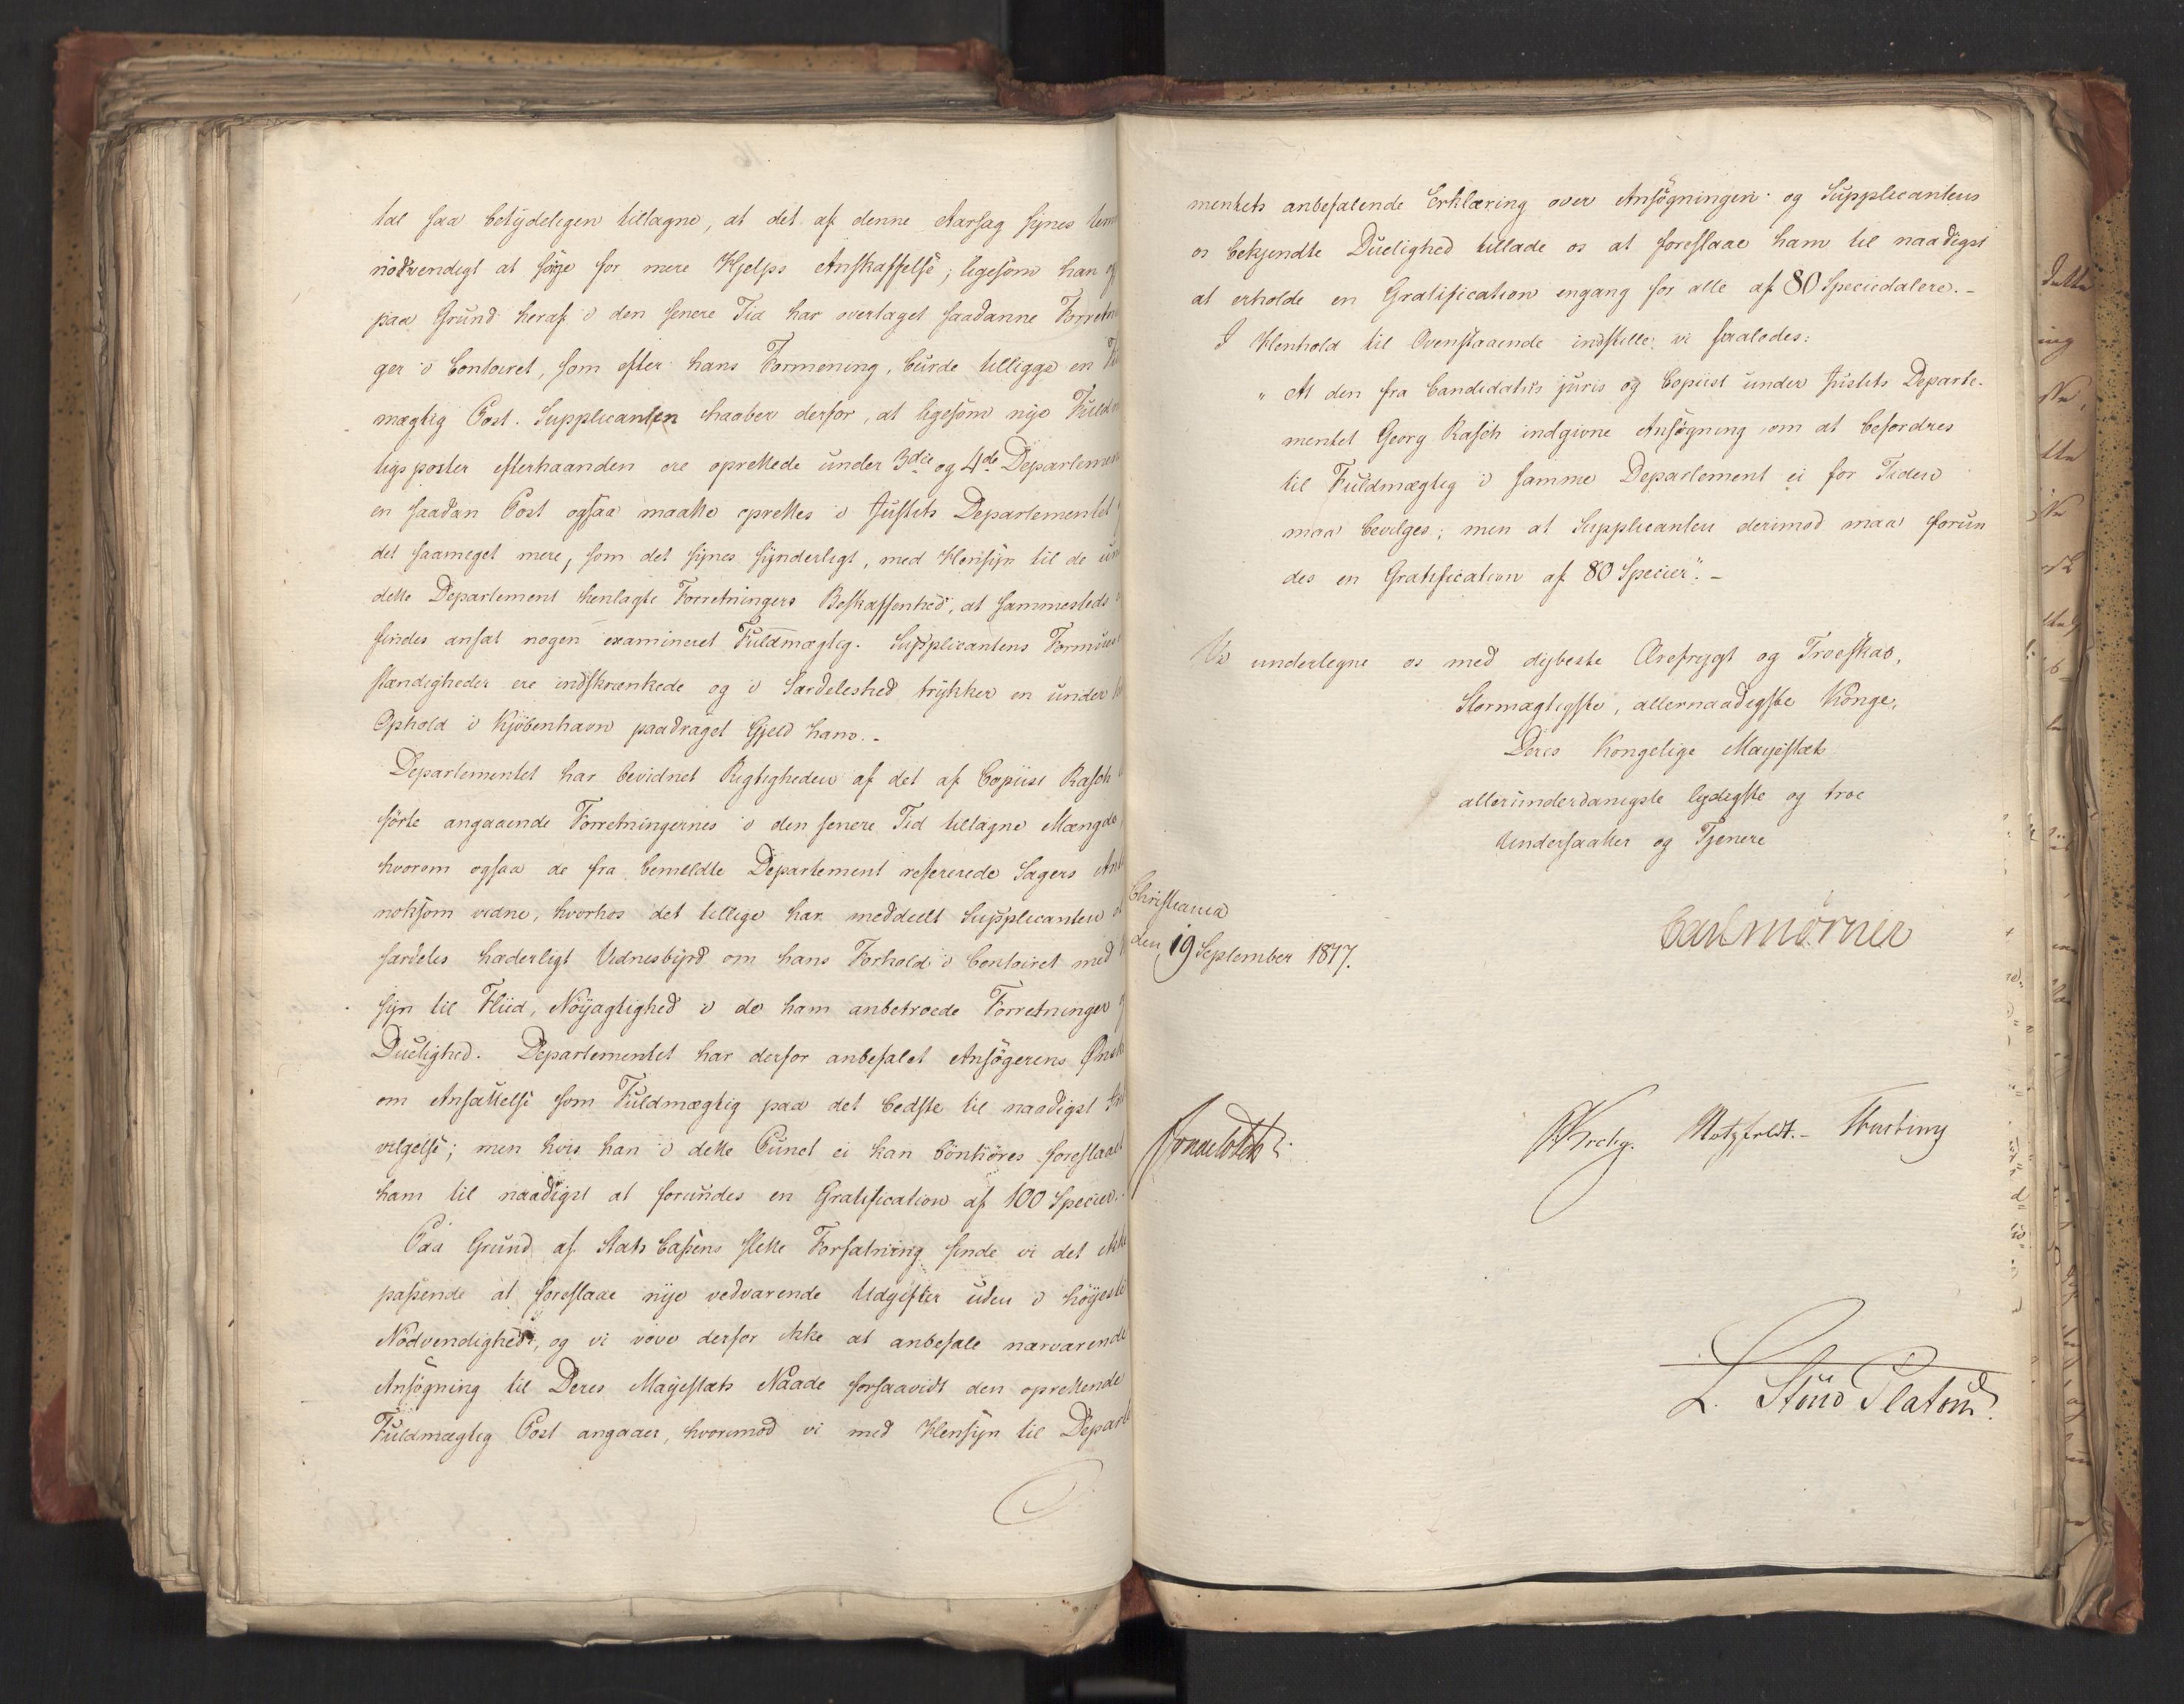 tal saa betydeligen tiltagne, at det af denne Aarsag synes
nödvendigt at sörge for mere Hjelps Anskaffelse; ligesom han
paa Grund heraf i den senere Tid har overtaget saadanne
ger i Contoiret, som efter hans Formening, burde tilligge en
mægtig Post. Supplicanten haaber derfor, at ligesom nye
tigsposter efterhaanden ere oprettede under 3die og 4de
en saadan Post ogsaa maatte oprettes i Justits Departementet
det saameget mere, som det synes synderligt, med Hensyn til de
dette Departement henlagte Forretningers Beskaffenhed, at sammesteds
findes ansat nogen examineret Fuldmægtig. Supplicantens
stændigheder ere indskrænkede og i Særdeleshed trykker en under
Ophold i Kjöbenhavn paadraget Gjeld ham.-
Departementet har bevidnet Rigtigheden af det af Copiist Rasch
förte angaaende Forretningernes i den senere Tid tiltagne Mængde
hvorom ogsaa de fra bemeldte Departement refererede Sagers
noksom vidne, hvorhos det tillige har meddeelt Supplicanten
særdeles hæderligt Vidnesbyrd om hans Forhold i Contoiret med
syn til Fliid, Nöyagtighed i de ham anbetroede Forretninger
Duelighed. Departementet har derfor anbefalet Ansögerens
om Ansættelse som Fuldmægtig paa det bedste til naadigst
vilgelse; men hvis han i dette Punct ei kan bönhöres foreslaaet
ham til naadigst at forundes en Gratification af 100 Specier.
Paa Grund af Stats Cassens slette Forfatning finde vi det ikke
passende at foreslaae nye vedvarende Udgifter uden i höyeste
Nödvendighed, og vi vove derfor ikke at anbefale nærværende
Ansögning til Deres Mayestæts Naade forsaavidt den oprettende
Fuldmægtig Post angaaer, hvorimod vi med Hensyn til Departe
mentets anbefalende Erklæring over Ansögningen og Supplicantens
os bekjendte Duelighed tillade os at foreslaae ham til naadigst
at erholde en Gratification engang for alle af 80 Speciedalere.-
I Henhold til Ovenstaaende indstille vi saaledes:
"At den fra Candidatus juris og Copiist under Justits Departe-
mentet Georg Rasch indgivne Ansögning om at befordres
til Fuldmægtig i samme Departement ei for Tiden
maa bevilges; men at Supplicanten derimod maa forun
des en Gratification af 80 Specier".-
Vi undertegne os med dybeste Ærefrygt og Troeskab,
Stormægtigste, allernaadigste Konge,
Deres Kongelige Mayestæts
allerunderdanigste lydigste og troe
Undersaatter og Tjenere
Christiania
den 19 September 1817.
Carl Mörner
Motzfeldt.-
L. Stoud Platou